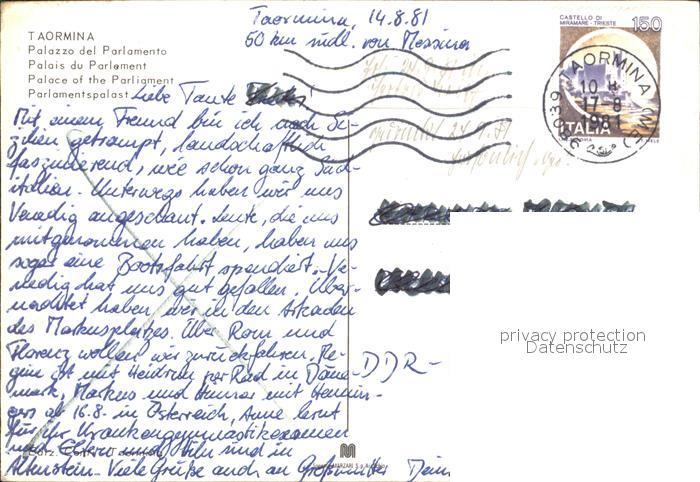 Taormina, 14.8.81
60 km südl. von Messina
TAORMINA
Palazzo del Parlamento
Palais du Parlament
Palace of the Parliament
Parlamentspalast
CASTELLO DI
MIRAMARE - TRIESTE
150
ITALIA
TAORMINA (ME)
17-8
1981
98039
Liebe Tante
Mit einem Freund bin ich nach Si-
zilien getrampt, landschaftlich
faszinierend, wie schon ganz Süd-
italien. Unterwegs haben wir uns
Venedig angeschaut. Leute, die uns
mitgenommen haben, haben uns
sogar eine Bootsfahrt spendiert. Ve-
nedig hat uns gut gefallen. Über-
nachtet haben wir in den Arkaden
des Markusplatzes. Über Rom und
Florenz wollen wir zurückfahren. Re-
gin ist mit Heidrun per Rad in Däne-
mark, Markus und mit
ab 16.8. in Österreich, Anne lernt
für ihr Krankengymnastikexamen
und Eltern und sind in
Altenstein. Viele Grüße auch an Großmutter Dein
- DDR -
privacy protection
Datenschutz